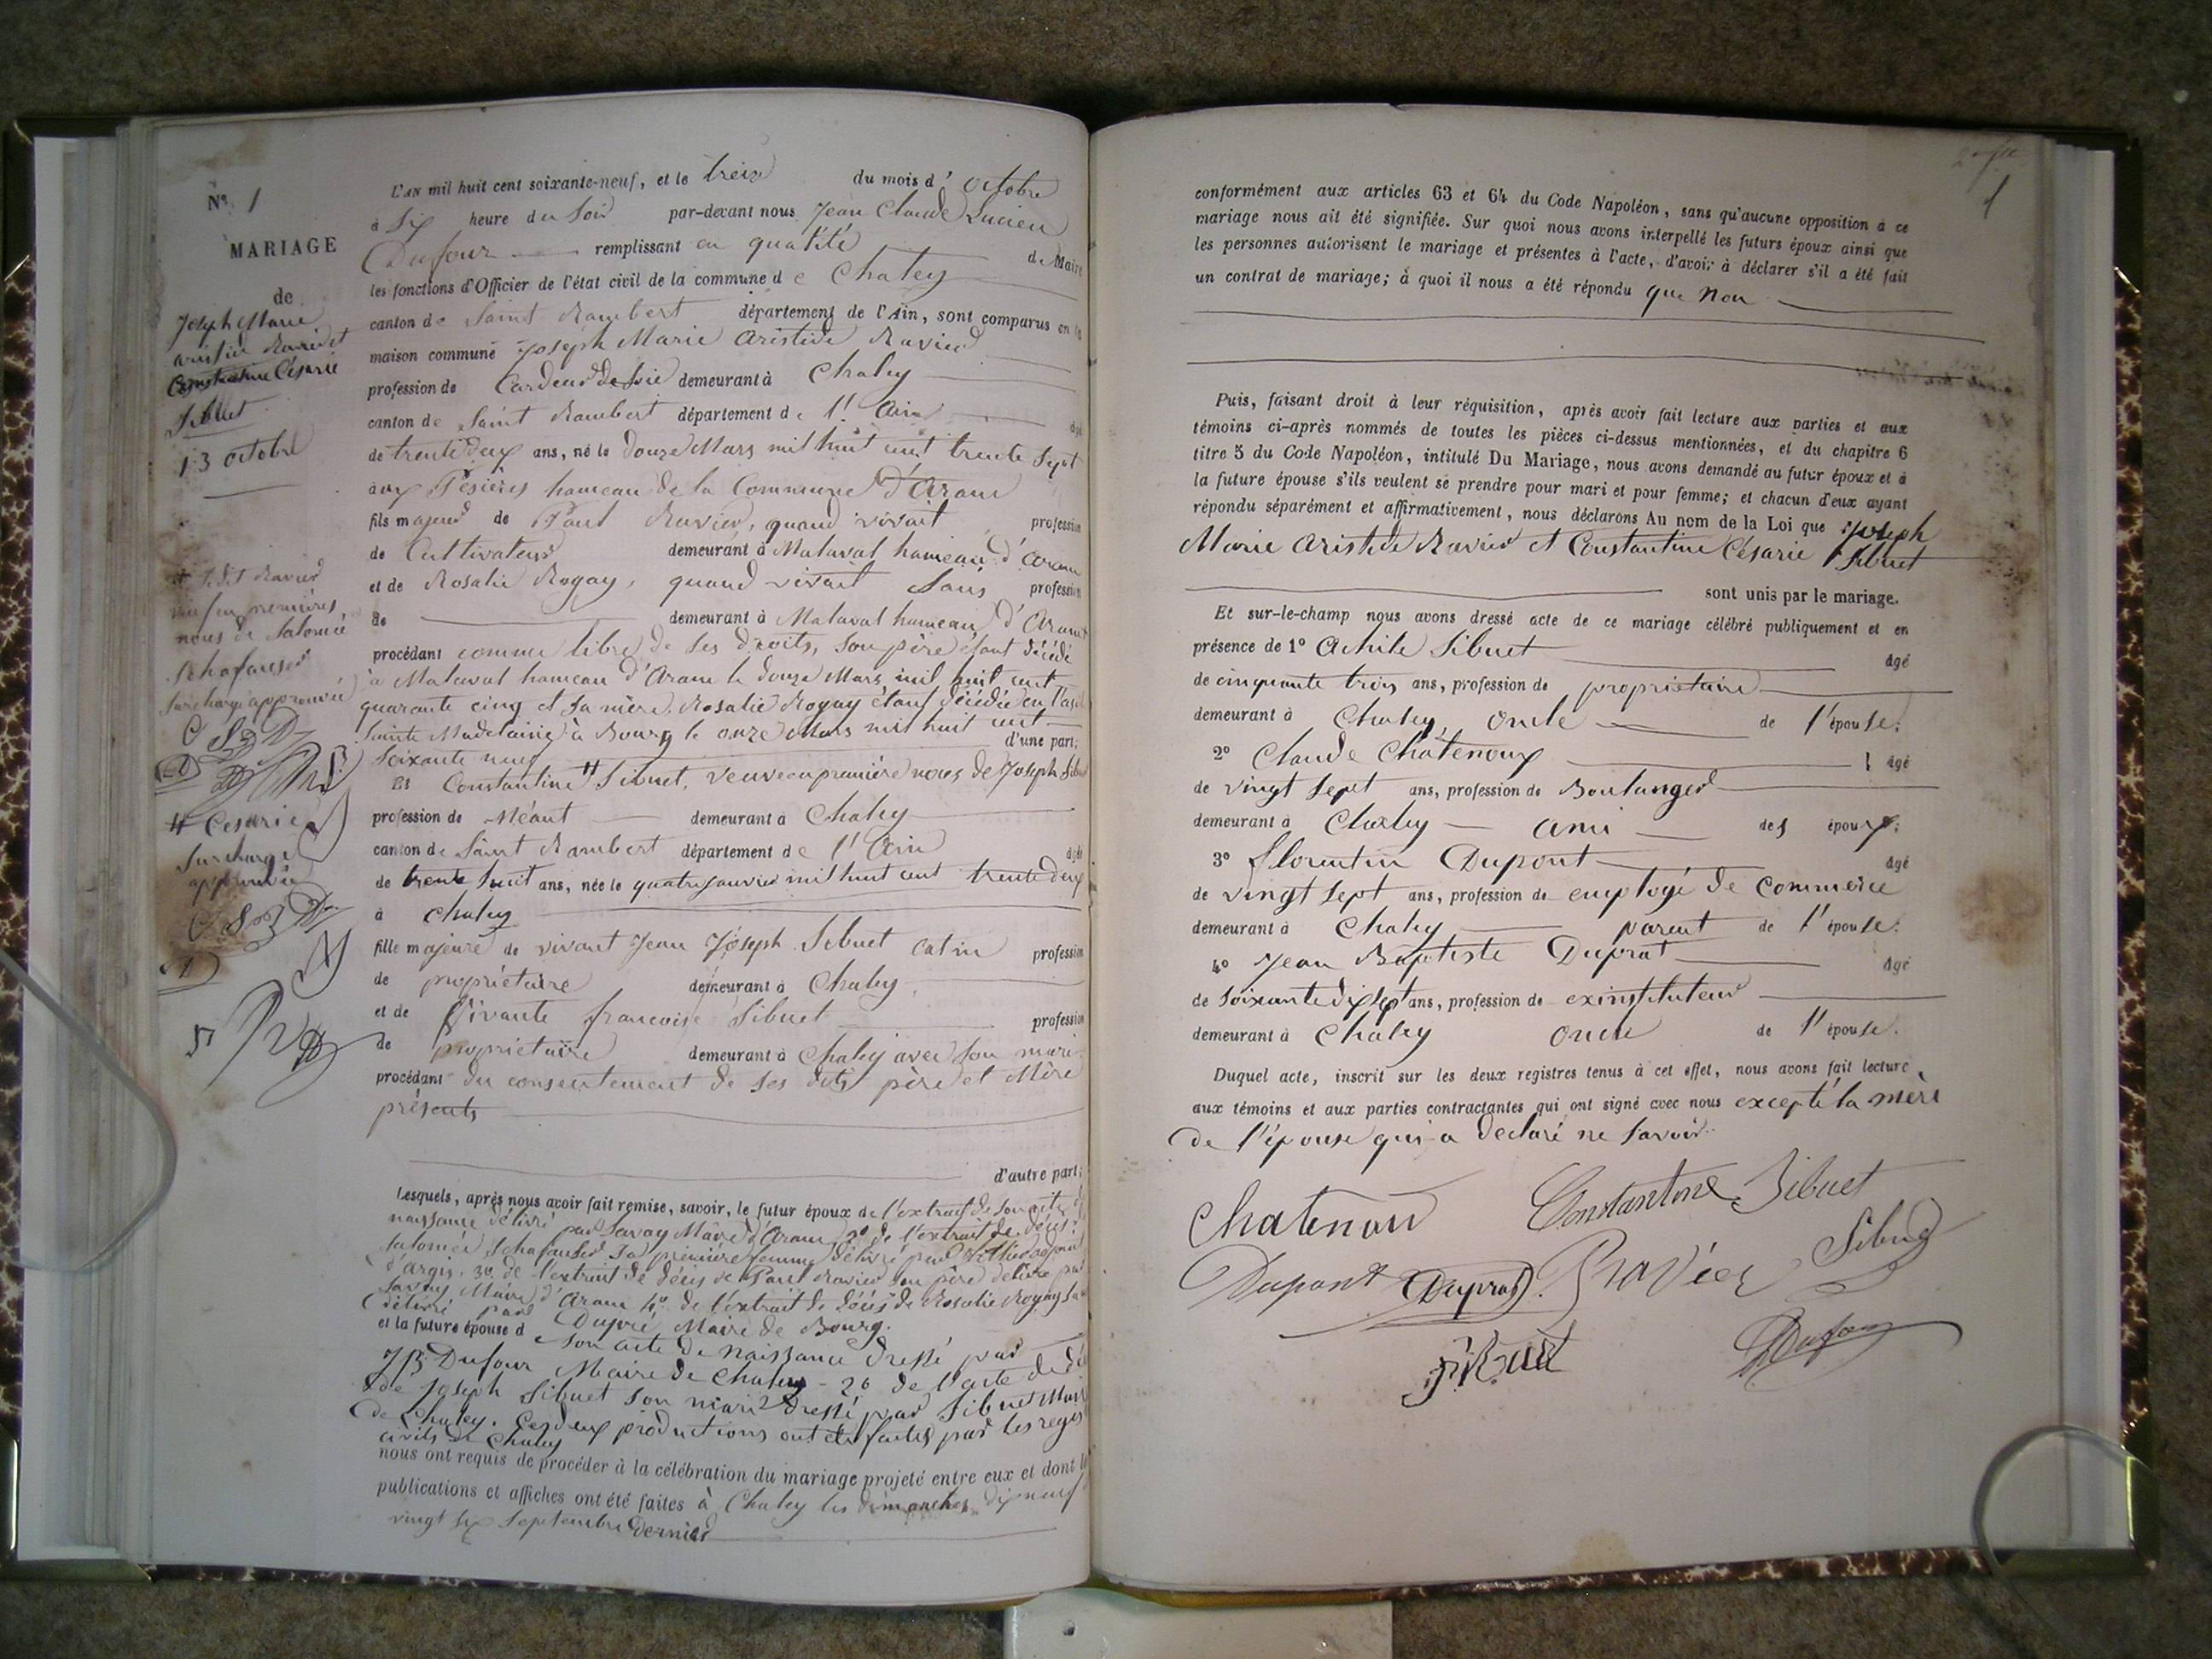 N° 1
MARIAGE
de
Joseph Marie
aristide Ravier et
Constantine Césarie
Sibuet
13 octobre
L'AN mil huit cent soixante-neuf, et le treize du mois d' octobre
à Six heure du Soir par-devant nous Jean Claude Lucien
Dufour remplissant en qualité de Maire
les fonctions d'Officier de l'état civil de la commune de Chaley
canton de Saint Rambert département de l'Ain, sont comparus en la
maison commune Joseph Marie Aristide Ravier
profession de Cardeur de soie demeurant à Chaley
canton de Saint Rambert département de l' Ain
de trente deux ans, né le Douze Mars mil huit cent trente Sept
aux Pésières hameau de la Commune d'Aranc
fils majeur de Paul Ravier, quand vivait profession
de Cultivateur demeurant à Malaval hameau d'Aranc
et de Rosalie Rogay, quand vivait Sans profession
de demeurant à Malaval hameau d'Aranc
procédant comme libre de ses droits, son père étant décédé
à Malaval hameau d'Aranc le douze Mars mil huit cent
quarante cinq et sa mère, Rosalie Rogay étant décédée en l'asile
Sainte Madelaine à Bourg le onze Mars mil huit cent
soixante neuf d'une part;
Et Constantine # Sibuet, veuve en première noces de Joseph Sibuet
profession de Néant demeurant à Chaley
canton de Saint Rambert département de l' Ain
de trente huit ans, née le quatre janvier mil huit cent trente deux
à Chaley
fille majeure de vivant Jean Joseph Sibuet Catin profession
de propriétaire demeurant à Chaley
et de Vivante françoise Sibuet profession
de propriétaire demeurant à Chaley avec son mari
procédant du consentement de ses dits père et Mère
présents
d'autre part;
Lesquels, après nous avoir fait remise, savoir, le futur époux de l'extrait de son acte de
naissance délivré par Savay Maire d'Aranc, 2° de l'extrait de décès de
Salomée Schafauser sa première femme délivré par
d'Argis. 3° de l'extrait de décès de Paul Ravier son père délivré par
Savay Maire d'Aranc 4° de l'extrait de décès de Rosalie Rogay sa
délivré par Dupré Maire de Bourg.
et la future épouse d son acte de naissance dressé par
JB Dufour Maire de Chaley - 2° de l'acte de dé
de Joseph Sibuet son mari dressé par Sibuet Maire
de Chaley. Ces deux productions ont été faites par les regis
civils de Chaley
nous ont requis de procéder à la célébration du mariage projeté entre eux et dont les
publications et affiches ont été faites à Chaley les dimanches dix neuf
vingt six Septembre dernier
# ledit Ravier
veuf en premières
noces de Salomée
Schafauser
Surcharge approuvée
# Césarie
Surcharge
approuvée
1
conformément aux articles 63 et 64 du Code Napoléon, sans qu'aucune opposition à ce
mariage nous ait été signifiée. Sur quoi nous avons interpellé les futurs époux ainsi que
les personnes autorisant le mariage et présentes à l'acte, d'avoir à déclarer s'il a été fait
un contrat de mariage; à quoi il nous a été répondu que Non
Puis, faisant droit à leur réquisition, après avoir fait lecture aux parties et aux
témoins ci-après nommés de toutes les pièces ci-dessus mentionnées, et du chapitre 6
titre 5 du Code Napoléon, intitulé Du Mariage, nous avons demandé au futur époux et à
la future épouse s'ils veulent se prendre pour mari et pour femme; et chacun d'eux ayant
répondu séparément et affirmativement, nous déclarons Au nom de la Loi que Joseph
Marie Aristide Ravier et Constantine Césarie Sibuet
sont unis par le mariage.
Et sur-le-champ nous avons dressé acte de ce mariage célébré publiquement et en
présence de 1° Achile Sibuet âgé
de cinquante trois ans, profession de propriétaire
demeurant à Chaley, oncle de l'épouse.
2° Claude Châtenoux âgé
de vingt sept ans, profession de Boulanger
demeurant à Chaley ami des époux;
3° Florentin Dupont âgé
de vingt sept ans, profession de employé de Commerce
demeurant à Chaley parent de l'épouse.
4° Jean Baptiste Duprat âgé
de soixante dix sept ans, profession de exinstituteur
demeurant à Chaley oncle de l'épouse.
Duquel acte, inscrit sur les deux registres tenus à cet effet, nous avons fait lecture
aux témoins et aux parties contractantes qui ont signé avec nous excepté la mère
de l'épouse qui a déclaré ne savoir.
Chatenou Constantine Sibuet
Dupont Duprat Ravier Sibuet
Dufour